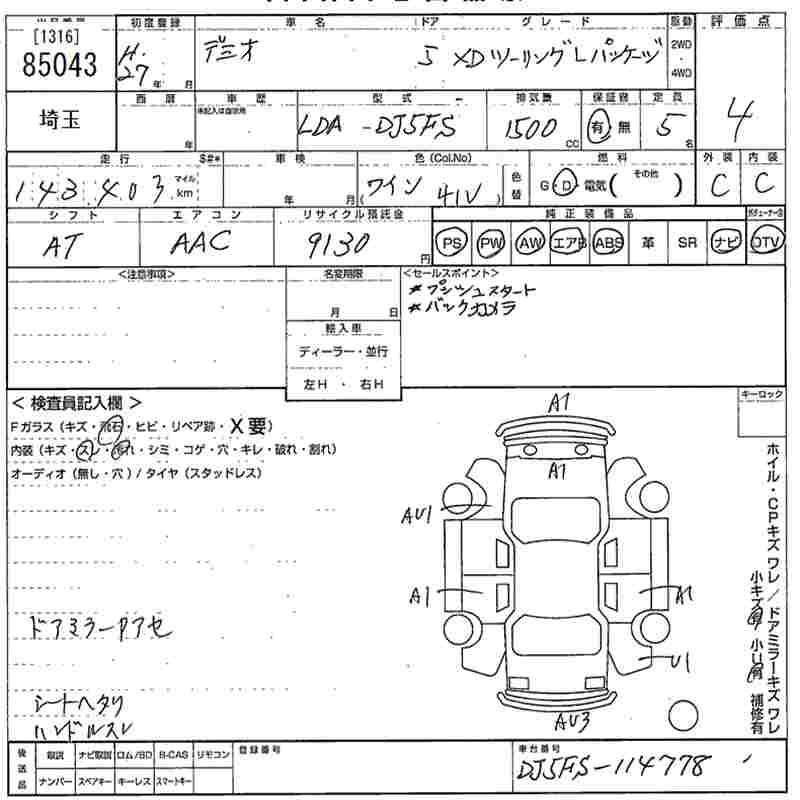 [1316]
85043
埼玉
初度登録
H.
27 年 月
車名 ドア グレード
デミオ 5 XDツーリングLパッケージ
駆動
2WD
・
4WD
評価点
4
西暦
年
車歴
未記入は自家用
型式
LDA - DJ5FS
排気量
1500 CC
保証書
有 無
定員
5 名
走行 $#*
143,403 マイル km
車検
年 月
色 (Col.No)
(ワイン 41V)
色替
燃料
G・D・電気( その他 )
外装 内装
C C
シフト
AT
エアコン
AAC
リサイクル預託金
9130 円
純正装備品
PS PW AW エアB ABS 革 SR ナビ DTV
<注意事項>
名変期限
月 日
輸入車
ディーラー・並行
左H ・ 右H
<セールスポイント>
*プッシュスタート
*バックカメラ
キーロック
< 検査員記入欄 >
Fガラス (キズ・飛石・ヒビ・リペア跡・X要)
内装 (キズ・スレ・汚れ・シミ・コゲ・穴・キレ・破れ・割れ)
オーディオ (無し・穴) / タイヤ (スタッドレス)
ドアミラーアセ
シートヘタリ
ハンドルスレ
A1
A1
AU1
A1
A1
U1
AU3
ホイル・CPキズワレ/ドアミラーキズワレ
小キズ有 小U有 補修有
後送品
取説 ナビ取説 ロム/BD B-CAS リモコン
ナンバー スペアキー キーレス スマートキー
登録番号
車台番号
DJ5FS-114778